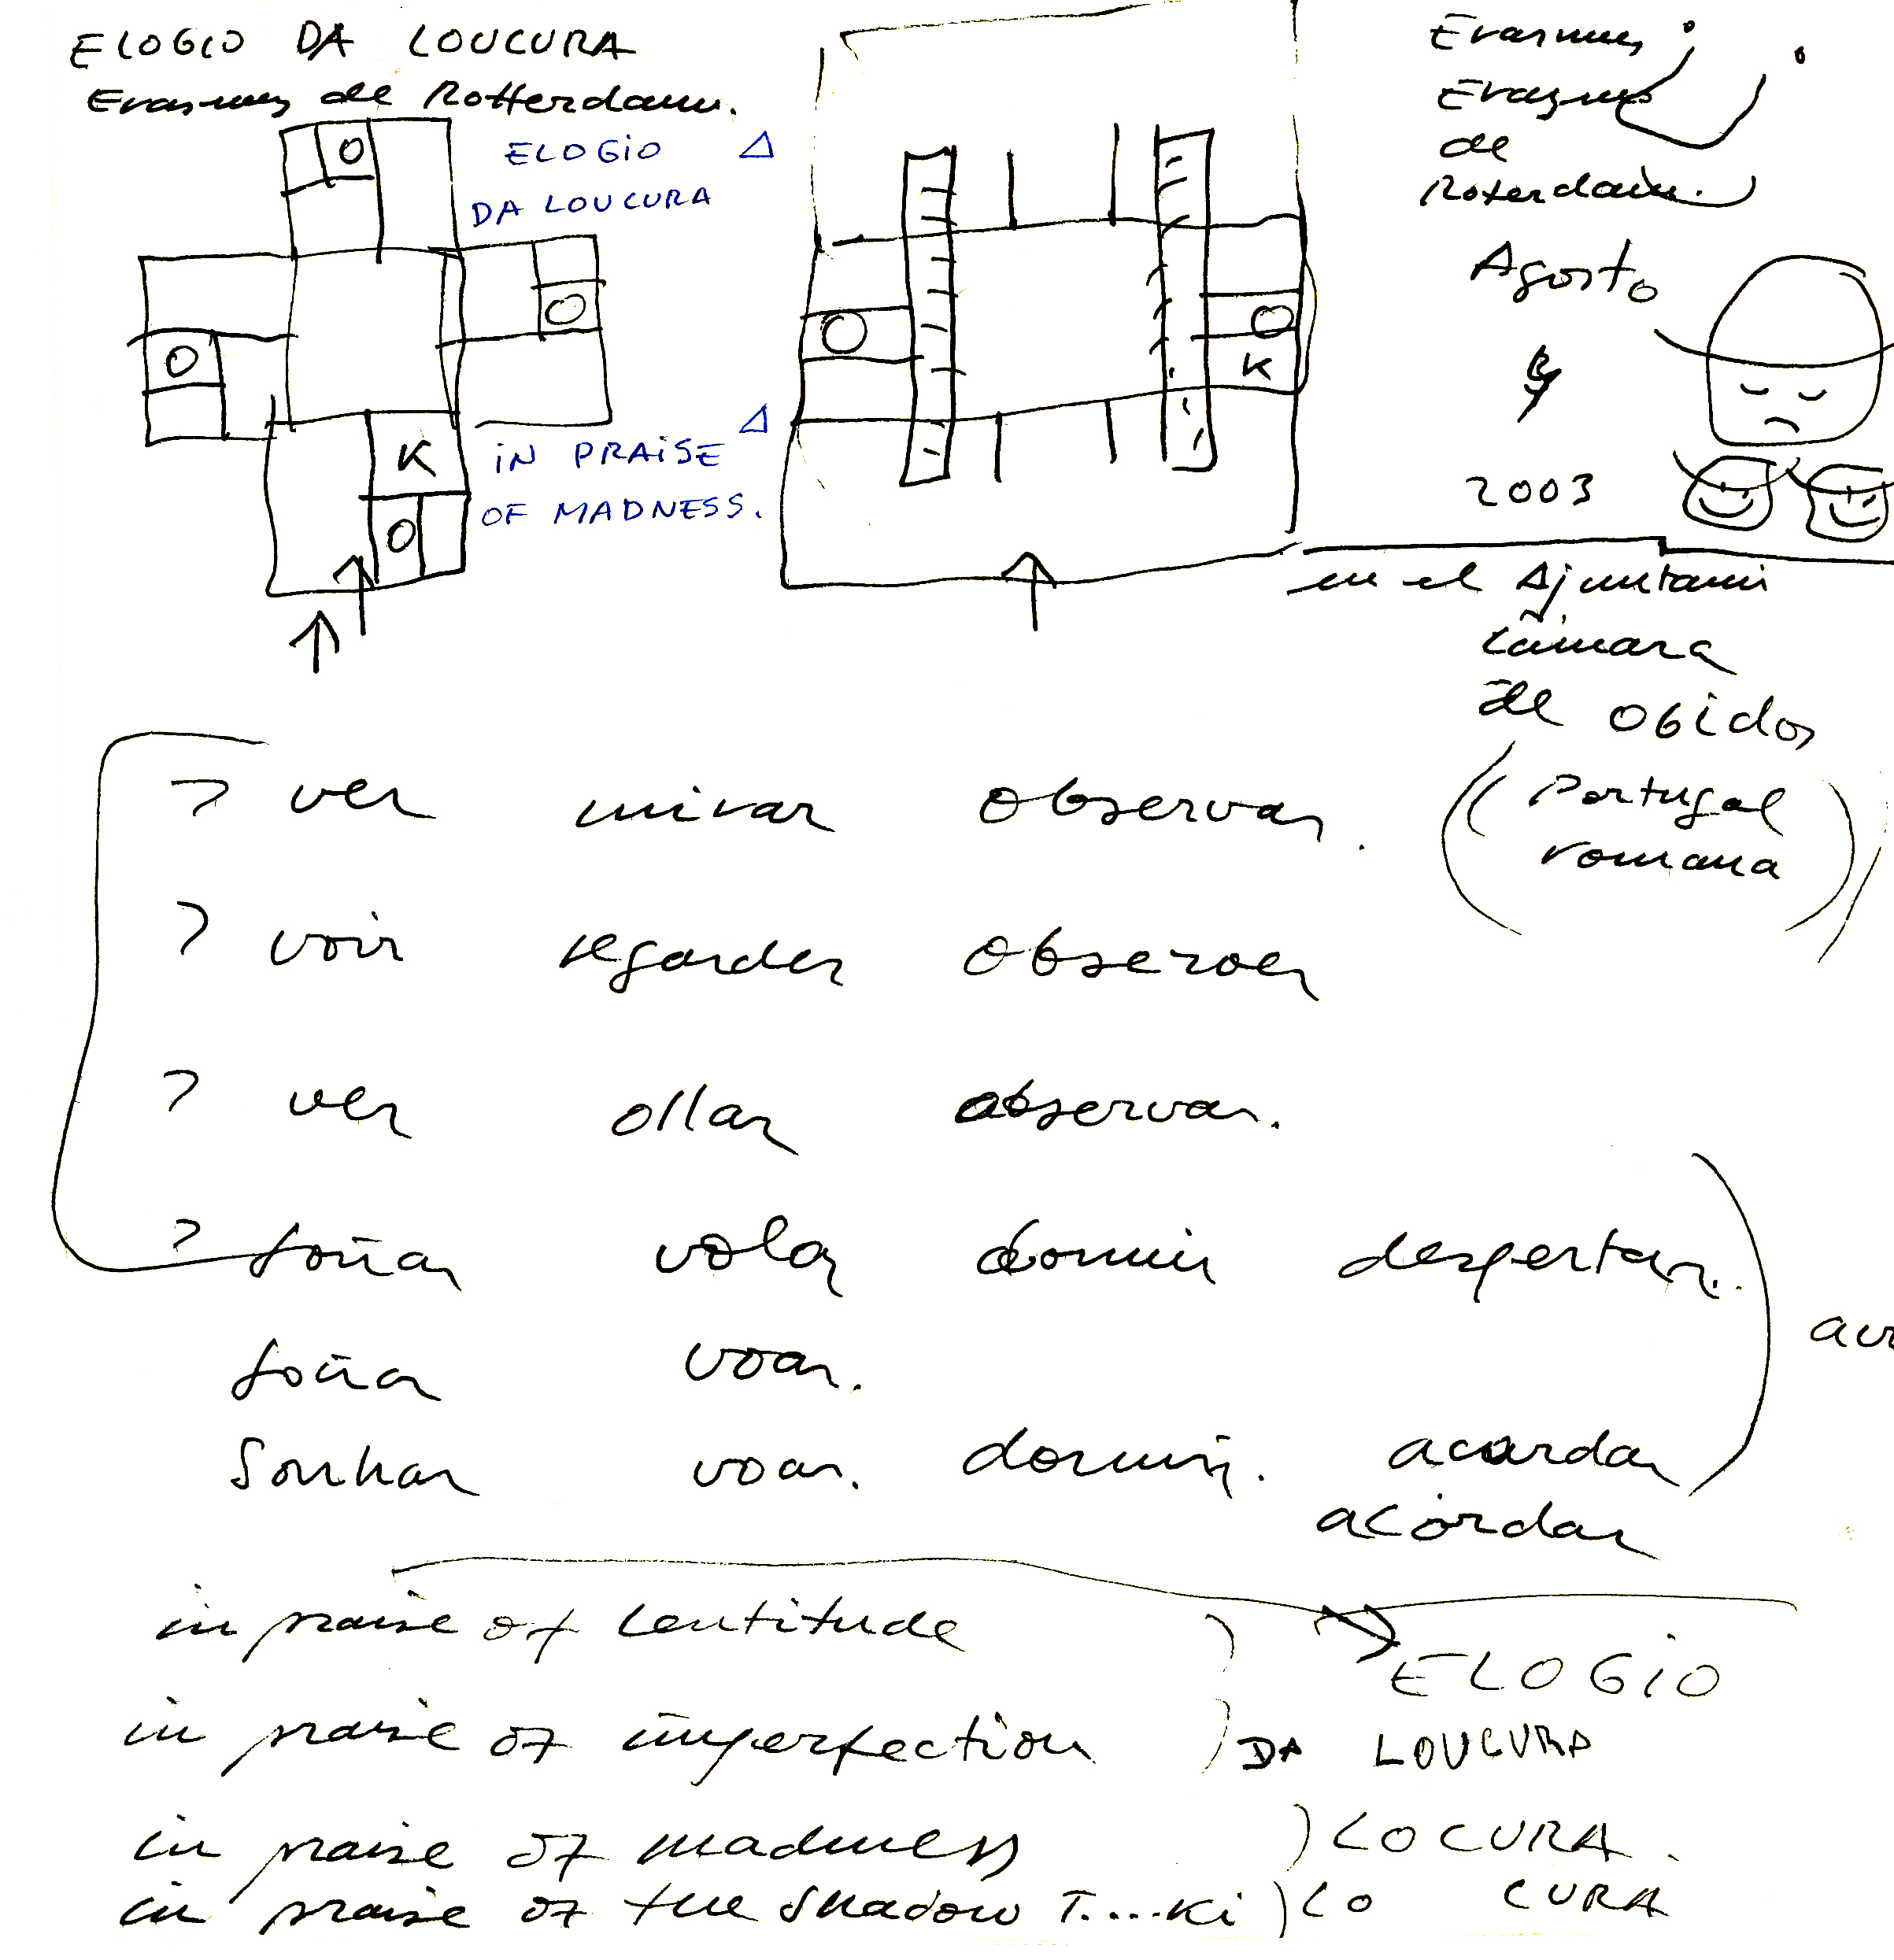 ELOGIO DA LOUCURA
Erasmus de Rotterdam.
O
ELOGIO
DA LOUCURA
O
O
K
IN PRAISE
OF MADNESS.
O
O
O
K
Erasmus
Erasmus
de
Roterdam.
Agosto
2003
en el Ajuntami
câmara
de Obidos
(Portugal
romana)
? ver mirar observar.
? voir regarder observer
? ver ollar observar.
? soñar volar dormir despertar..
soñar voar.
Sonhar voar. dormir. acordar
acordar
in praise of lentitude
in praise of imperfection
in praise of madness
in praise of the shadow T....ki
ELOGIO
DA LOUCURA
LOCURA.
LO CURA